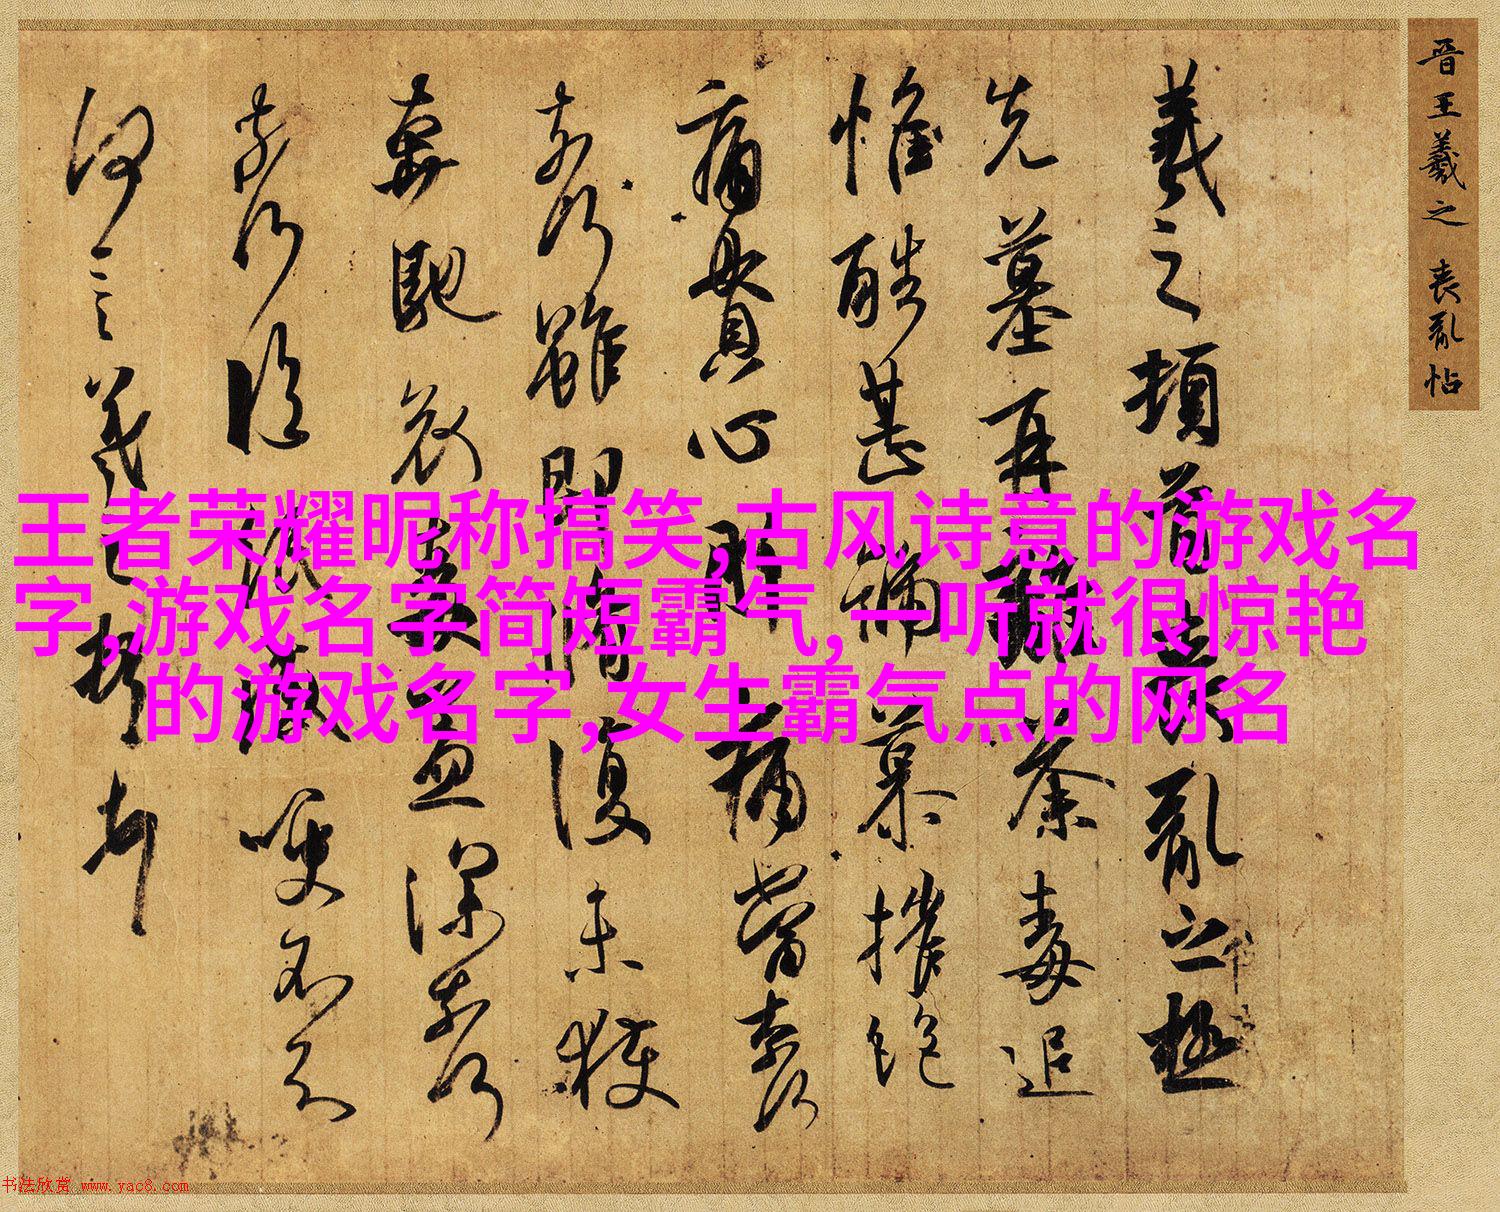 晋王羲之 喪亂帖
羲之頓首喪亂之極
先墓再離荼毒追
惟酷甚號慕摧絕
痛貫心肝痛當奈何
奈何雖即脩復未獲
奔馳哀毒益深奈何
奈何臨紙感哽不知
何言羲之頓首頓首
王者荣耀昵称搞笑,古风诗意的游戏名
字,游戏名字简短霸气,一听就很惊艳
的游戏名字,女生霸气点的网名
书法欣赏 www.yac8.com